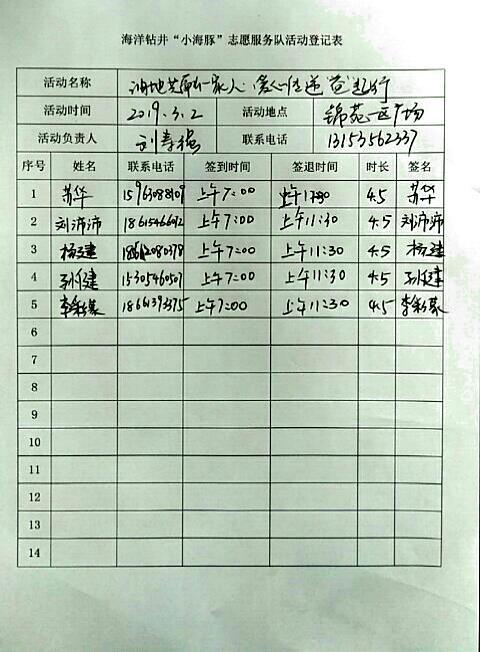 海洋钻井“小海豚”志愿服务队活动登记表
活动名称 油地共融一家人·爱心传递 益起行
活动时间 2019.3.2 活动地点 锦苑一区广场
活动负责人 刘寿强 联系电话 13153562337
序号 姓名 联系电话 签到时间 签退时间 时长 签名
1 苏华 15963088109 上午7:00 上午11:30 4.5 苏华
2 刘沛沛 上午7:00 上午11:30 4.5 刘沛沛
3 杨建 上午7:00 上午11:30 4.5 杨建
4 孙健 15305460507 上午7:00 上午11:30 4.5 孙健
5 李彩霞 18661393375 上午7:00 上午11:30 4.5 李彩霞
6
7
8
9
10
11
12
13
14